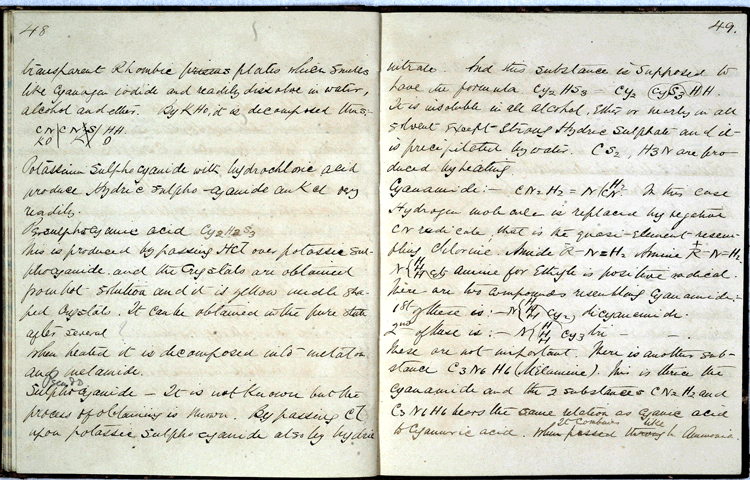 48
transparent Rhombic plates which smells
like Cyanogen iodide and readily dissolve in water,
alcohol and ether. By KHO, it is decomposed thus:-
CN | CN S | HH
KO | K | O
Potassium Sulphocyanide with hydrochloric acid
produce Hydric Sulpho-cyanide and KCl very
readily.
Persulphocyanic acid Cy2H2S3
This is produced by passing HCl over potassic Sul-
phocyanide and the Crystals are obtained
from hot solution and it is yellow needle sha-
ped Crystals. It can be obtained in the pure state
after several
When heated it is decomposed into
and melamide.
Sulphocyanide — It is not known but the
process of obtaining is known. By passing Cl
upon potassic sulphocyanide also by hydric
49.
nitrate. And this substance is supposed to
have the formula Cy2 HS3 — Cy2 (CyS3) HH.
It is insoluble in all alcohol, Ether or nearly in all
solvent except strong Hydric Sulphate and it
is precipitated by water. CS2, H3N are pro-
duced by heating
Cyanamide:— CN2H2 = In this case
Hydrogen molecule is replaced by negative
CN radicale, that is the quasi-element resem-
bling Chlorine. Amide R—N=H2 Amine R—N—H2
amine for Ethyle is positive radical.
There are two compounds resembling Cyanamide:—
1st of these is:— N(H H Cy2) dicyanamide.
2nd of these is:— N H H Cy3 tri — —
These are not important. There is another sub-
stance C3N6H6 (Melamine). This is thrice the
Cyanamide and the 2 substances CN2H2 and
C3N6H6 bears the same relation as cyanic acid
to Cyanuric acid. It combines like
When passed through Ammonia.